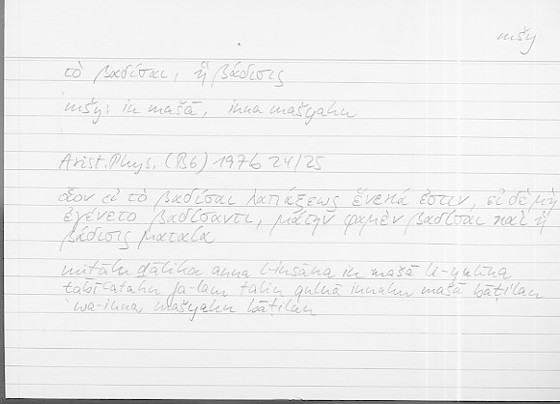 mšy
τὸ βαδίσαι, ἡ βάδισις
mšy: in mašā, inna mašyahu
Arist. Phys. (B6) 197b 24/25
οἷον εἰ τὸ βαδίσαι λαπάξεως ἕνεκά ἐστιν, εἰ δὲ μὴ
ἐγένετο βαδίσαντι, μάτην φαμὲν βαδίσαι καὶ ἡ
βάδισις ματαία
mitālu ḏālika anna l-insāna in mašā li-yulīna
ṭabīʿatahu fa-lam talin qulnā innahu mašā bāṭilan
wa-inna mašyahu bāṭilun